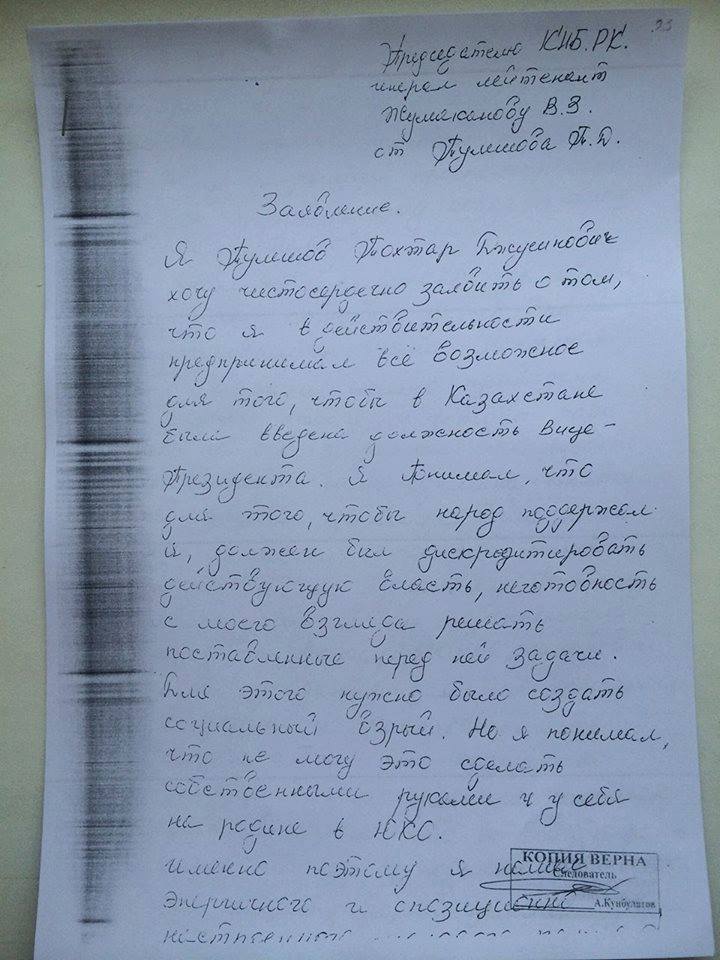 23
Председателю КНБ. РК.
генерал лейтенант
Жумаканову В.З.
от Тулешова Т.Д.
Заявление.
Я Тулешов Тохтар
хочу чистосердечно заявить о том,
что я в действительности
предпринимал всё возможное
для того, чтобы в Казахстане
была введена должность Вице-
Президента. Я понимал, что
для того, чтобы народ поддержал
я, должен был дискредитировать
действующую власть, неготовность
с моего взгляда решать
поставленные перед ней задачи.
Для этого нужно было создать
социальный взрыв. Но я понимал,
что не могу это сделать
собственными руками и у себя
на родине в ЮКО.
именно поэтому я
энергичного и
КОПИЯ ВЕРНА
Следователь
А.Кунбулатов